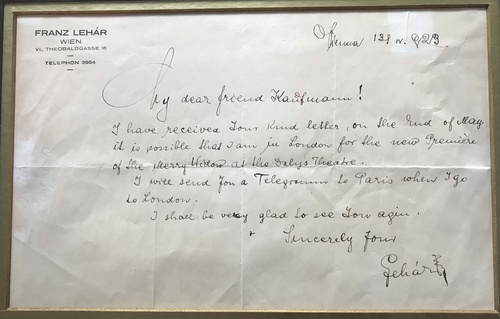 FRANZ LEHÁR
WIEN
VI. THEOBALDGASSE 16
TELEPHON 3964
Vienna 923
My dear friend Kauffmann!
I have received Your Kind letter, on the End of May
it is possible that I am in London for the new Première
of the Merry Widow at the Dalys Theatre.
I will send You a Telegramm to Paris when I go
to London.
I shall be very glad to see You agin.
Sincerely Your
Lehár